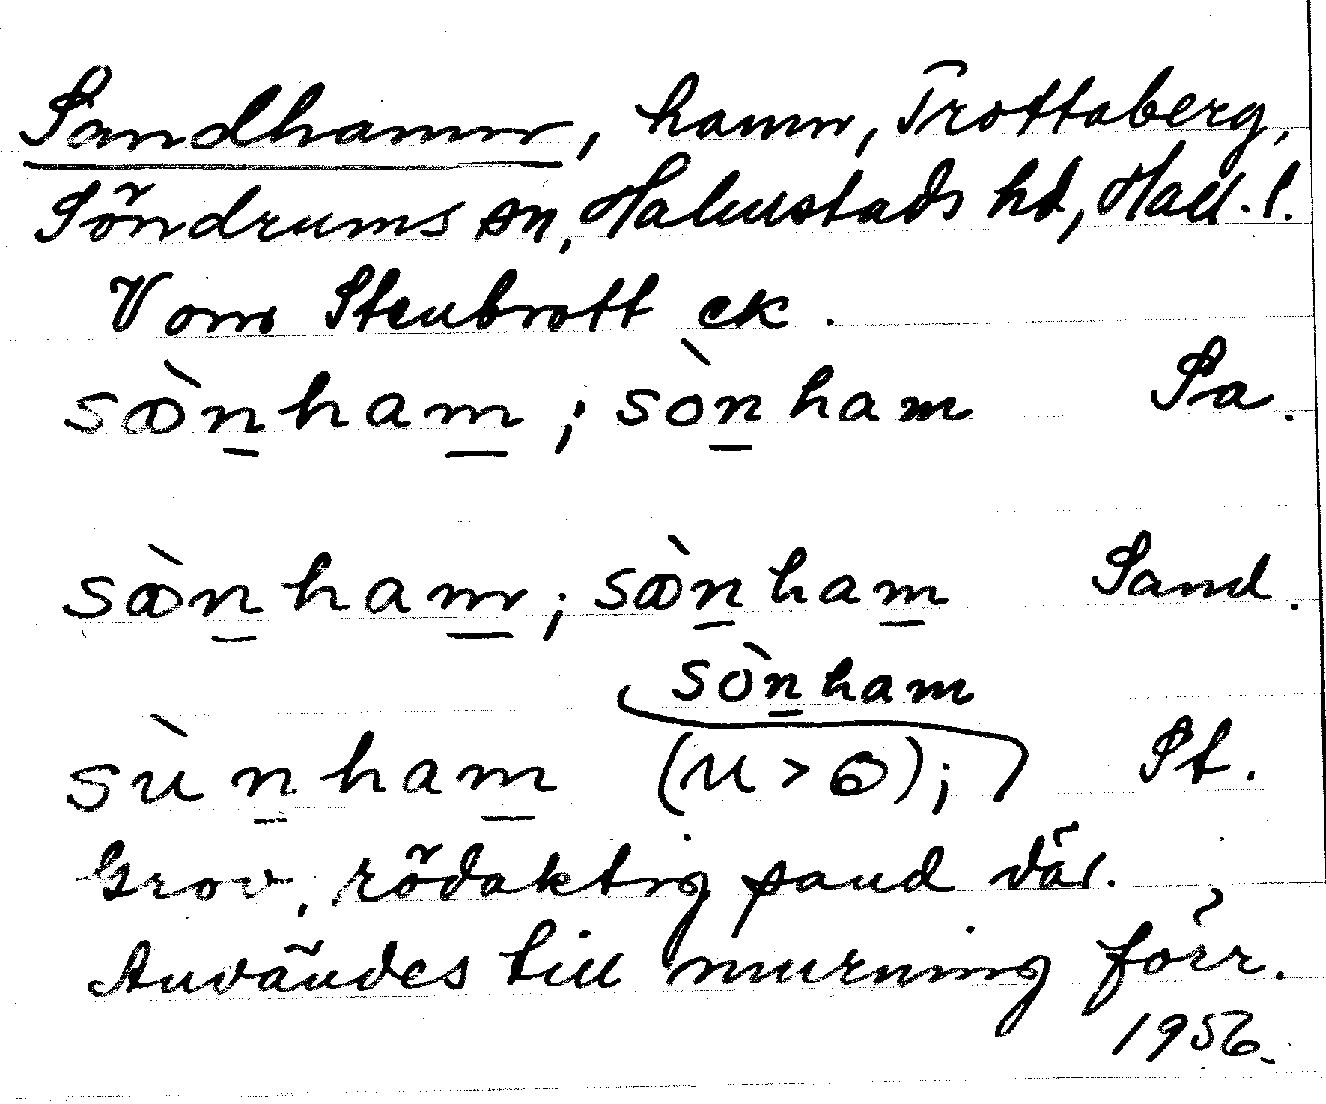 Sandhamn, hamn, Trottaberg,
Söndrums sn, Halmstads hd, Hall. l.
V om Stenbrott ek.
sɷ̀n̲ham̲; sòn̲ham Pa.
sɷ̀n̲ham̲; sɷ̀n̲ham̲ Sand.
sòn̲ham
sùn̲ham̲ (u > ɷ); St.
Grov, rödaktig sand där.
Användes till murning förr.
1956.